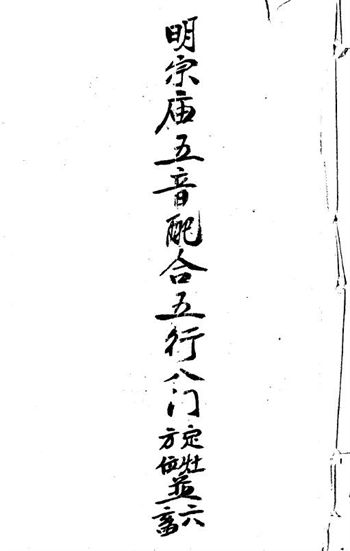 明宗庙五音配合五行八门
定灶
方位
並六畜